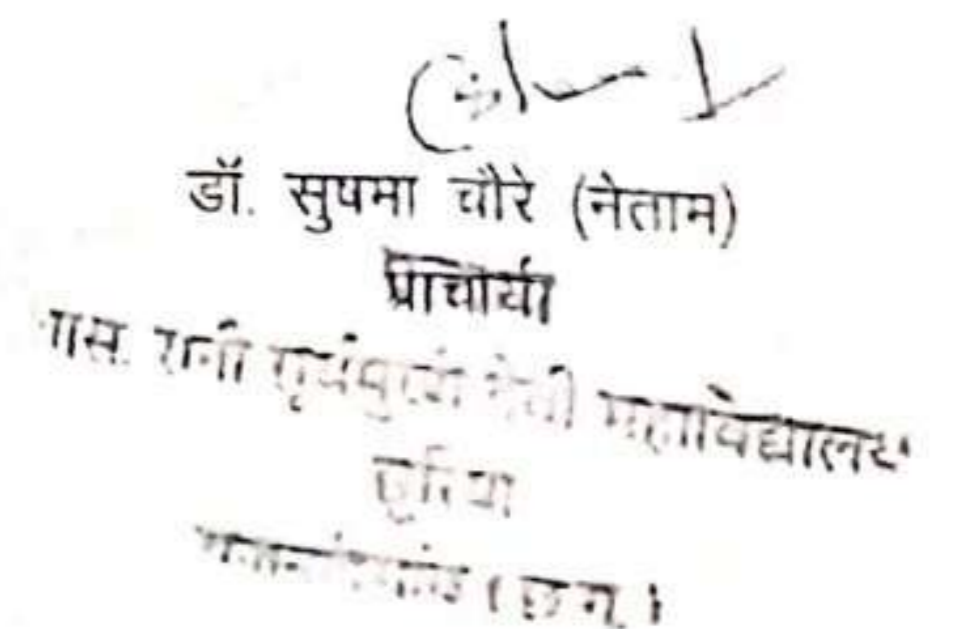 डॉ. सुषमा चौरे (नेताम)
प्राचार्या
शास. रानी सूर्यमुखी देवी महाविद्यालय
छुरिया
राजनांदगांव (छ.ग.)